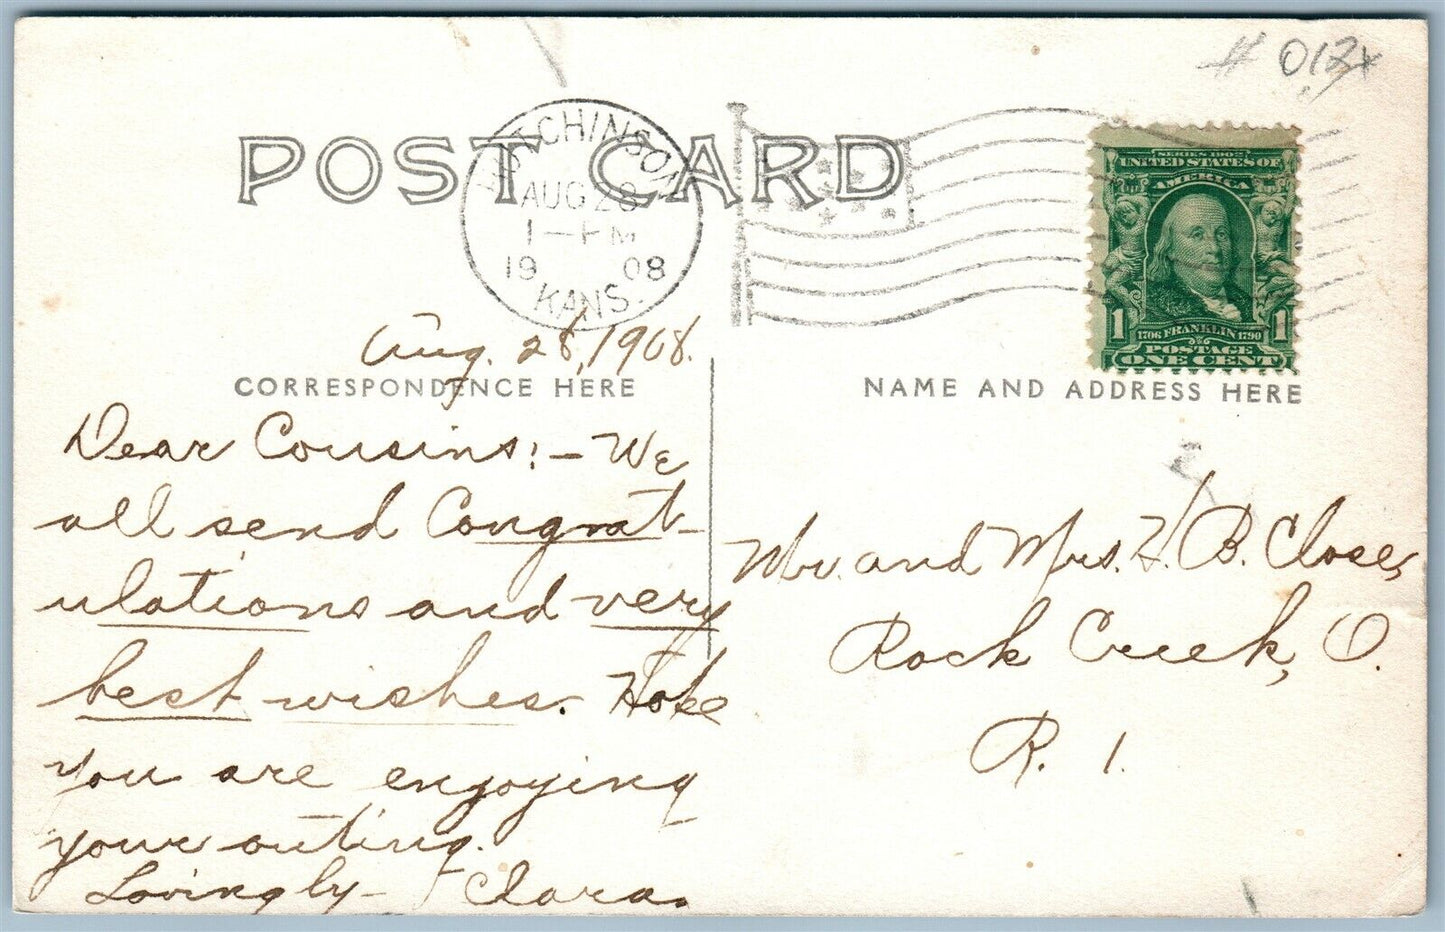 # 012x
POST CARD
HUTCHINSON
AUG 28
1—PM
1908
KANS.
SERIES 1902
UNITED STATES OF
AMERICA
1 1706 FRANKLIN 1790 1
POSTAGE
ONE CENT
Aug. 28, 1908.
CORRESPONDENCE HERE
Dear Cousins:— We
all send Congrat-
ulations and very
best wishes. Hope
you are enjoying
your outing.
Lovingly— Clara.
NAME AND ADDRESS HERE
Mr. and Mrs. H. B. Close,
Rock Creek, O.
R. 1.